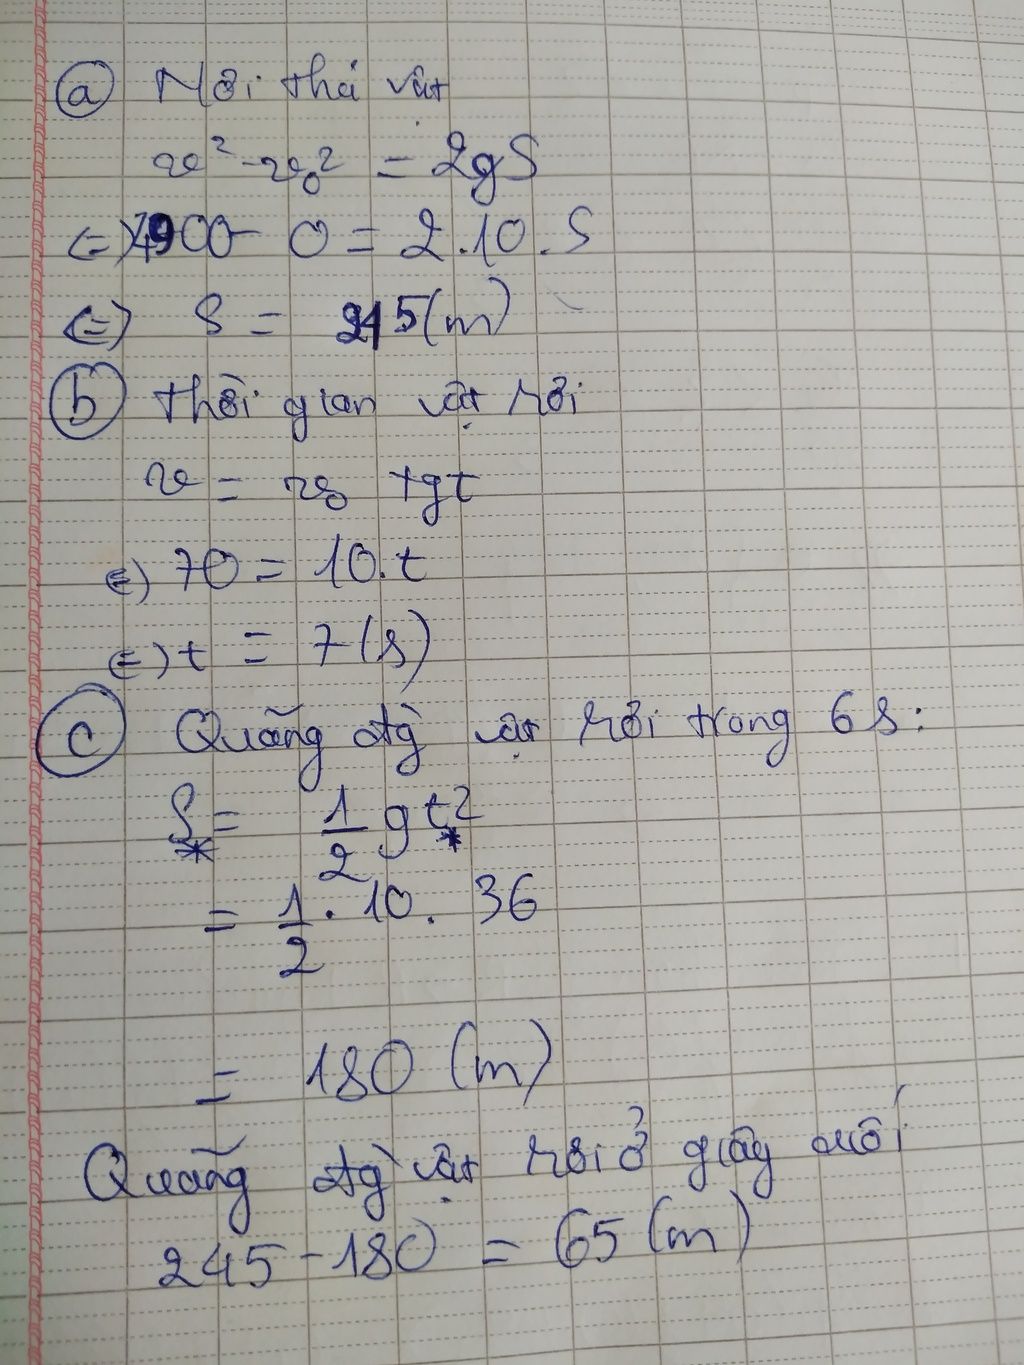 a Nơi thả vật
v² - v₀² = 2gS
<=> 4900 - 0 = 2.10.S
<=> S = 245 (m)
b Thời gian vật rơi
v = v₀ + gt
<=> 70 = 10.t
<=> t = 7 (s)
c Quãng đg̀ vật rơi trong 6s:
S* = 1/2 gt*²
= 1/2 . 10 . 36
= 180 (m)
Quãng đg̀ vật rơi ở giây cuối
245 - 180 = 65 (m)